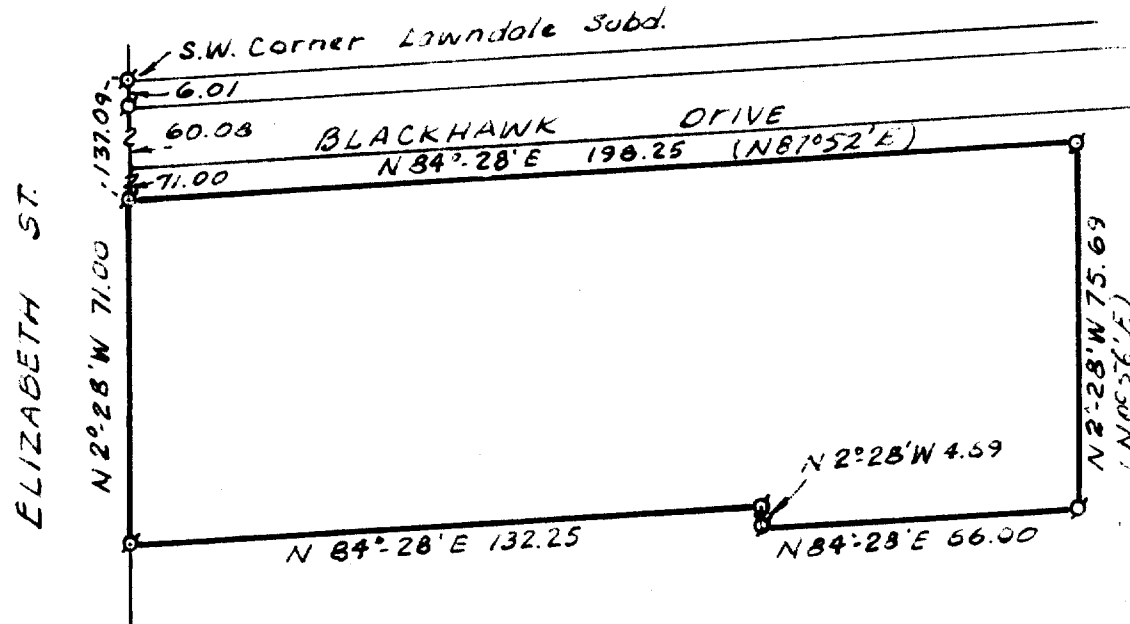 S.W. Corner Lawndale Subd.
6.01
137.09
60.08
BLACKHAWK DRIVE
N 84°-28'E 198.25 (N87°52'E)
71.00
ELIZABETH ST.
N 2°-28'W 71.00
N 2°-28'W 75.69
N 2°28'W 4.69
N 84°-28'E 132.25
N84°-28'E 66.00